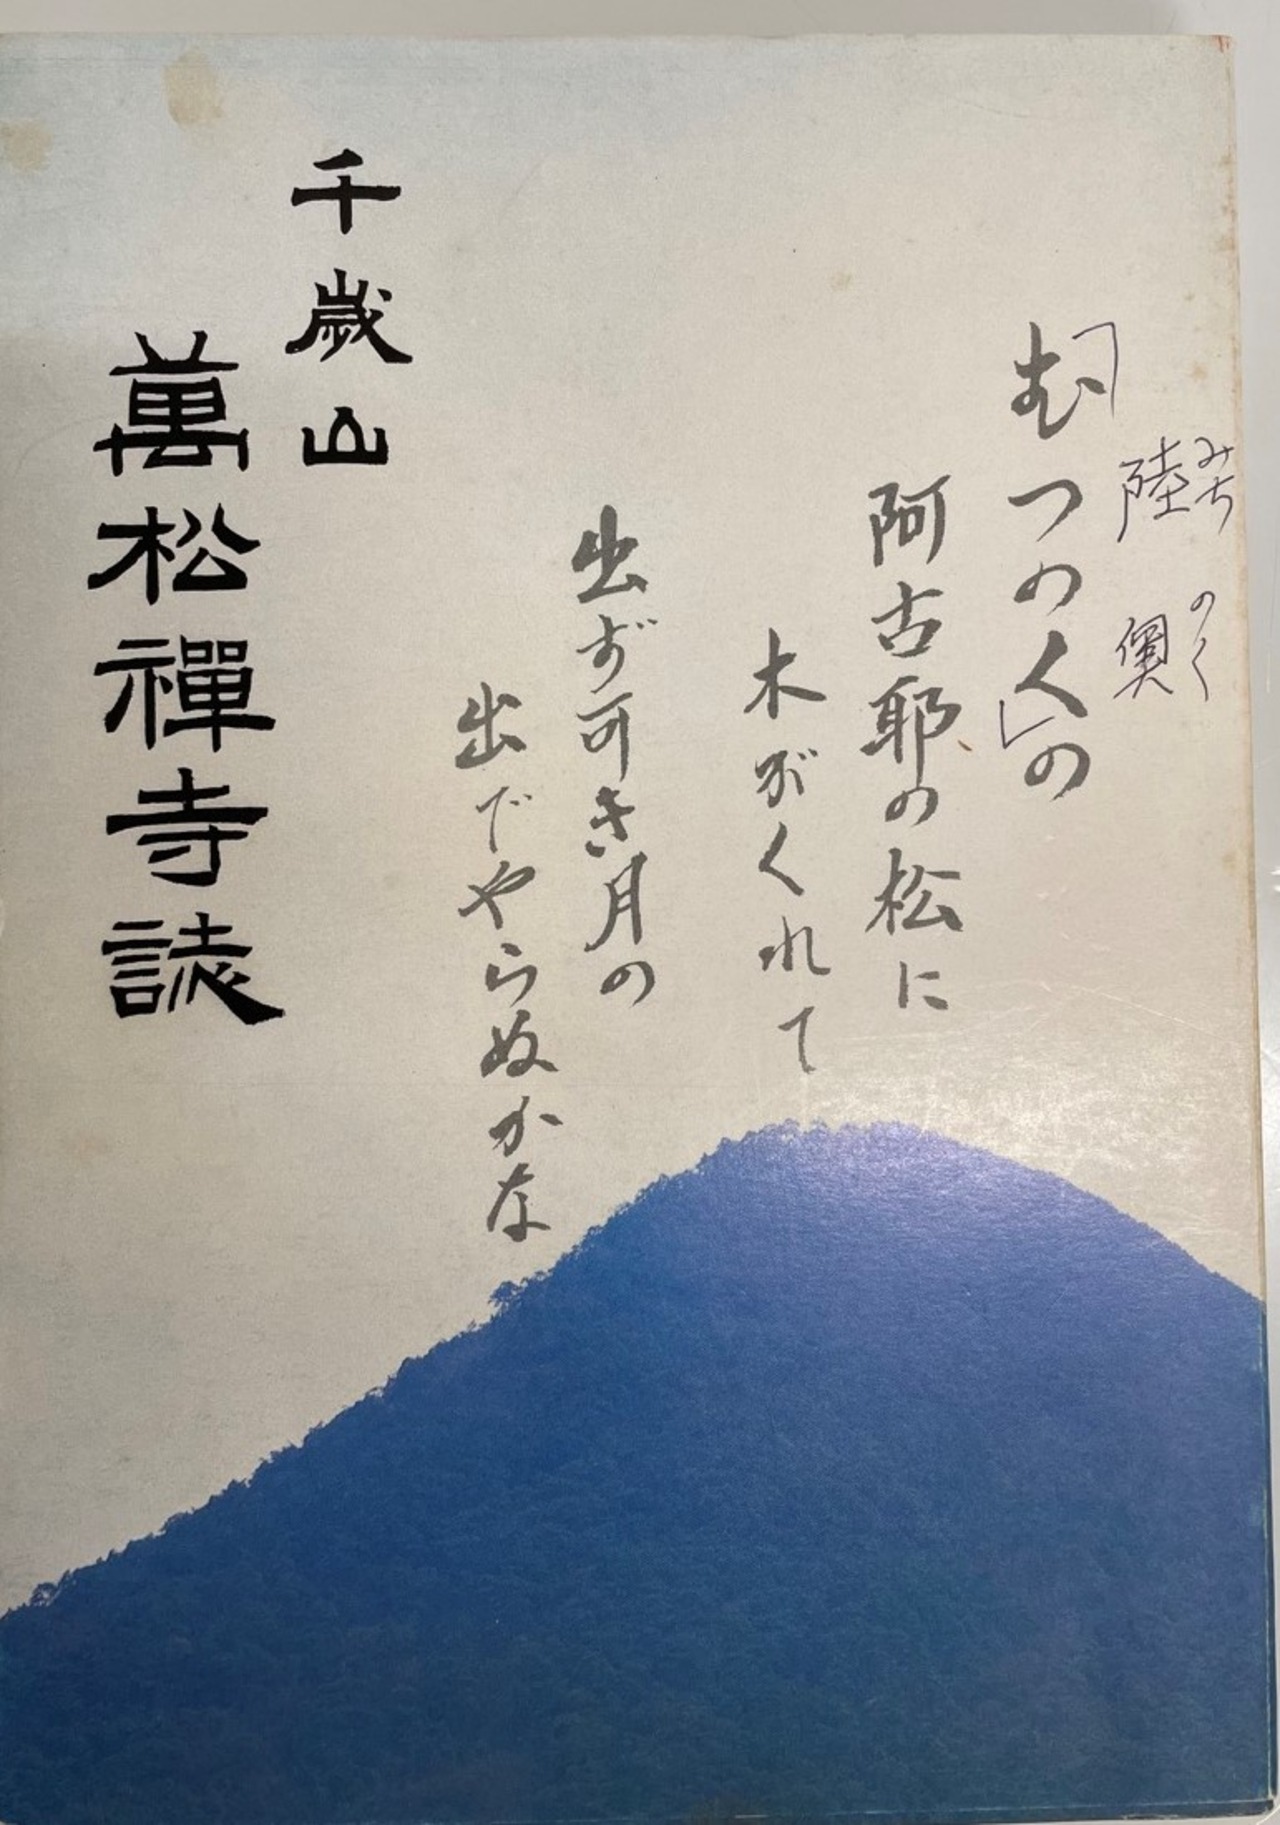 みちのく
陸奥
「むつのく」の
阿古耶の松に
木がくれて
出ず可き月の
出でやらぬかな
千歳山
萬松禅寺誌